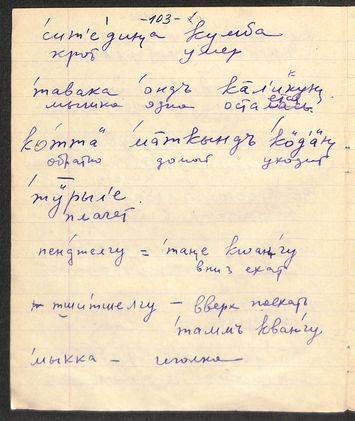 -103-
сит'е́диңа ку́мба
крот умер
та́вака о́ндъ ка́л'икуң
мышка одна осталась
ко́ттӓ ма́ткындъ ко́дӓң
обратно домой уходит
тӱ́рыл'е.
плачет
пенджелгу = та́ңе кван́гу
вниз ехать
тши́тшелгу – вверх поехать
та́ммъ кван́гу
мы́кка – иголка